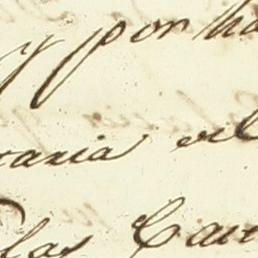 y por ha
taria del
las Cau